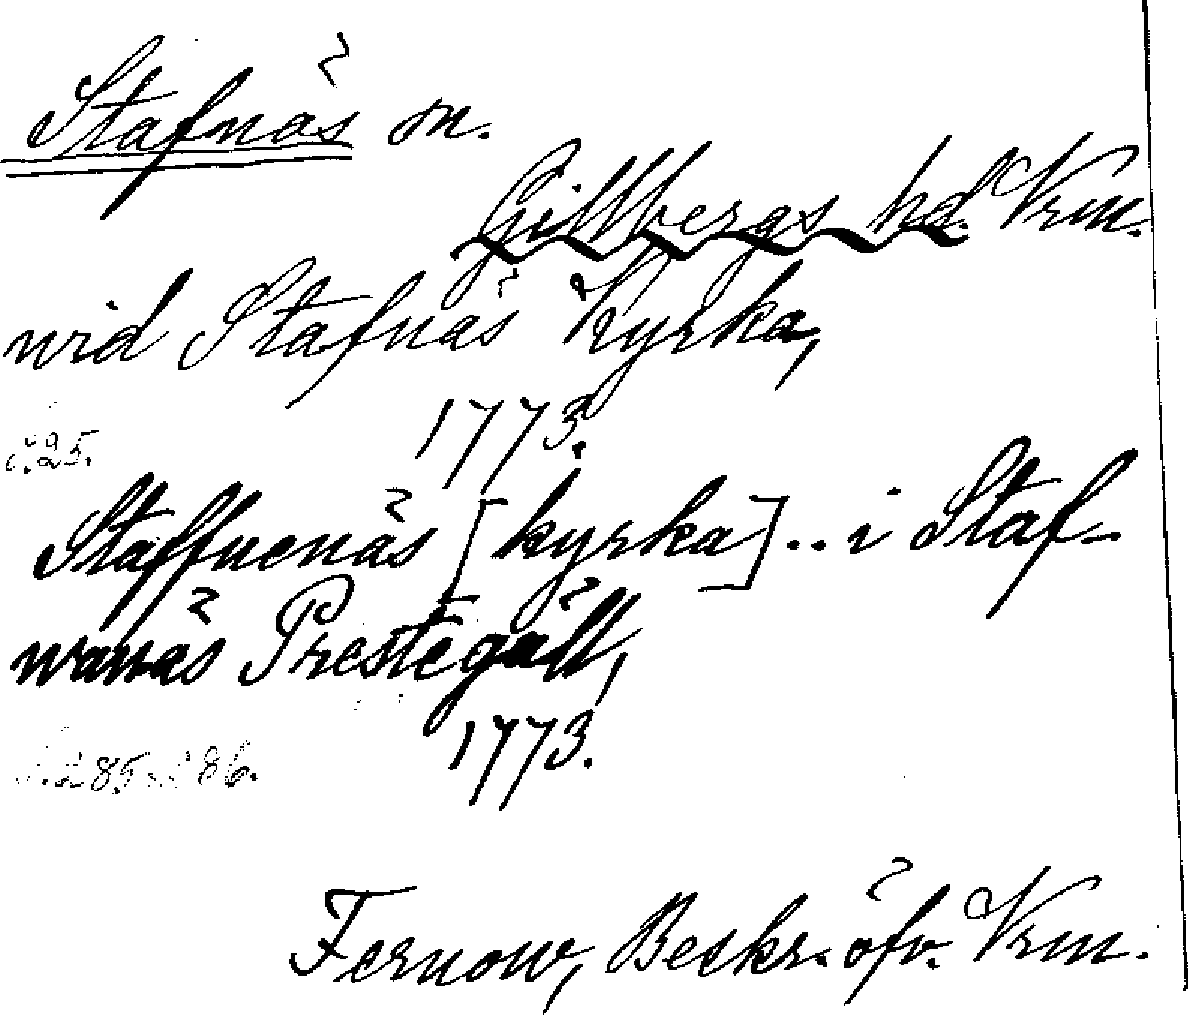 Stafnäs sn.
Gillbergs hd. Vrm.
wid Stafnäs Kyrka,
1773.
s. 25.
Staffuenäs [kyrka] .. i Staf-
wanäs Prestegäll,
1773.
s. 285. 286.
Fernow, Beskr. öfv. Vrm.